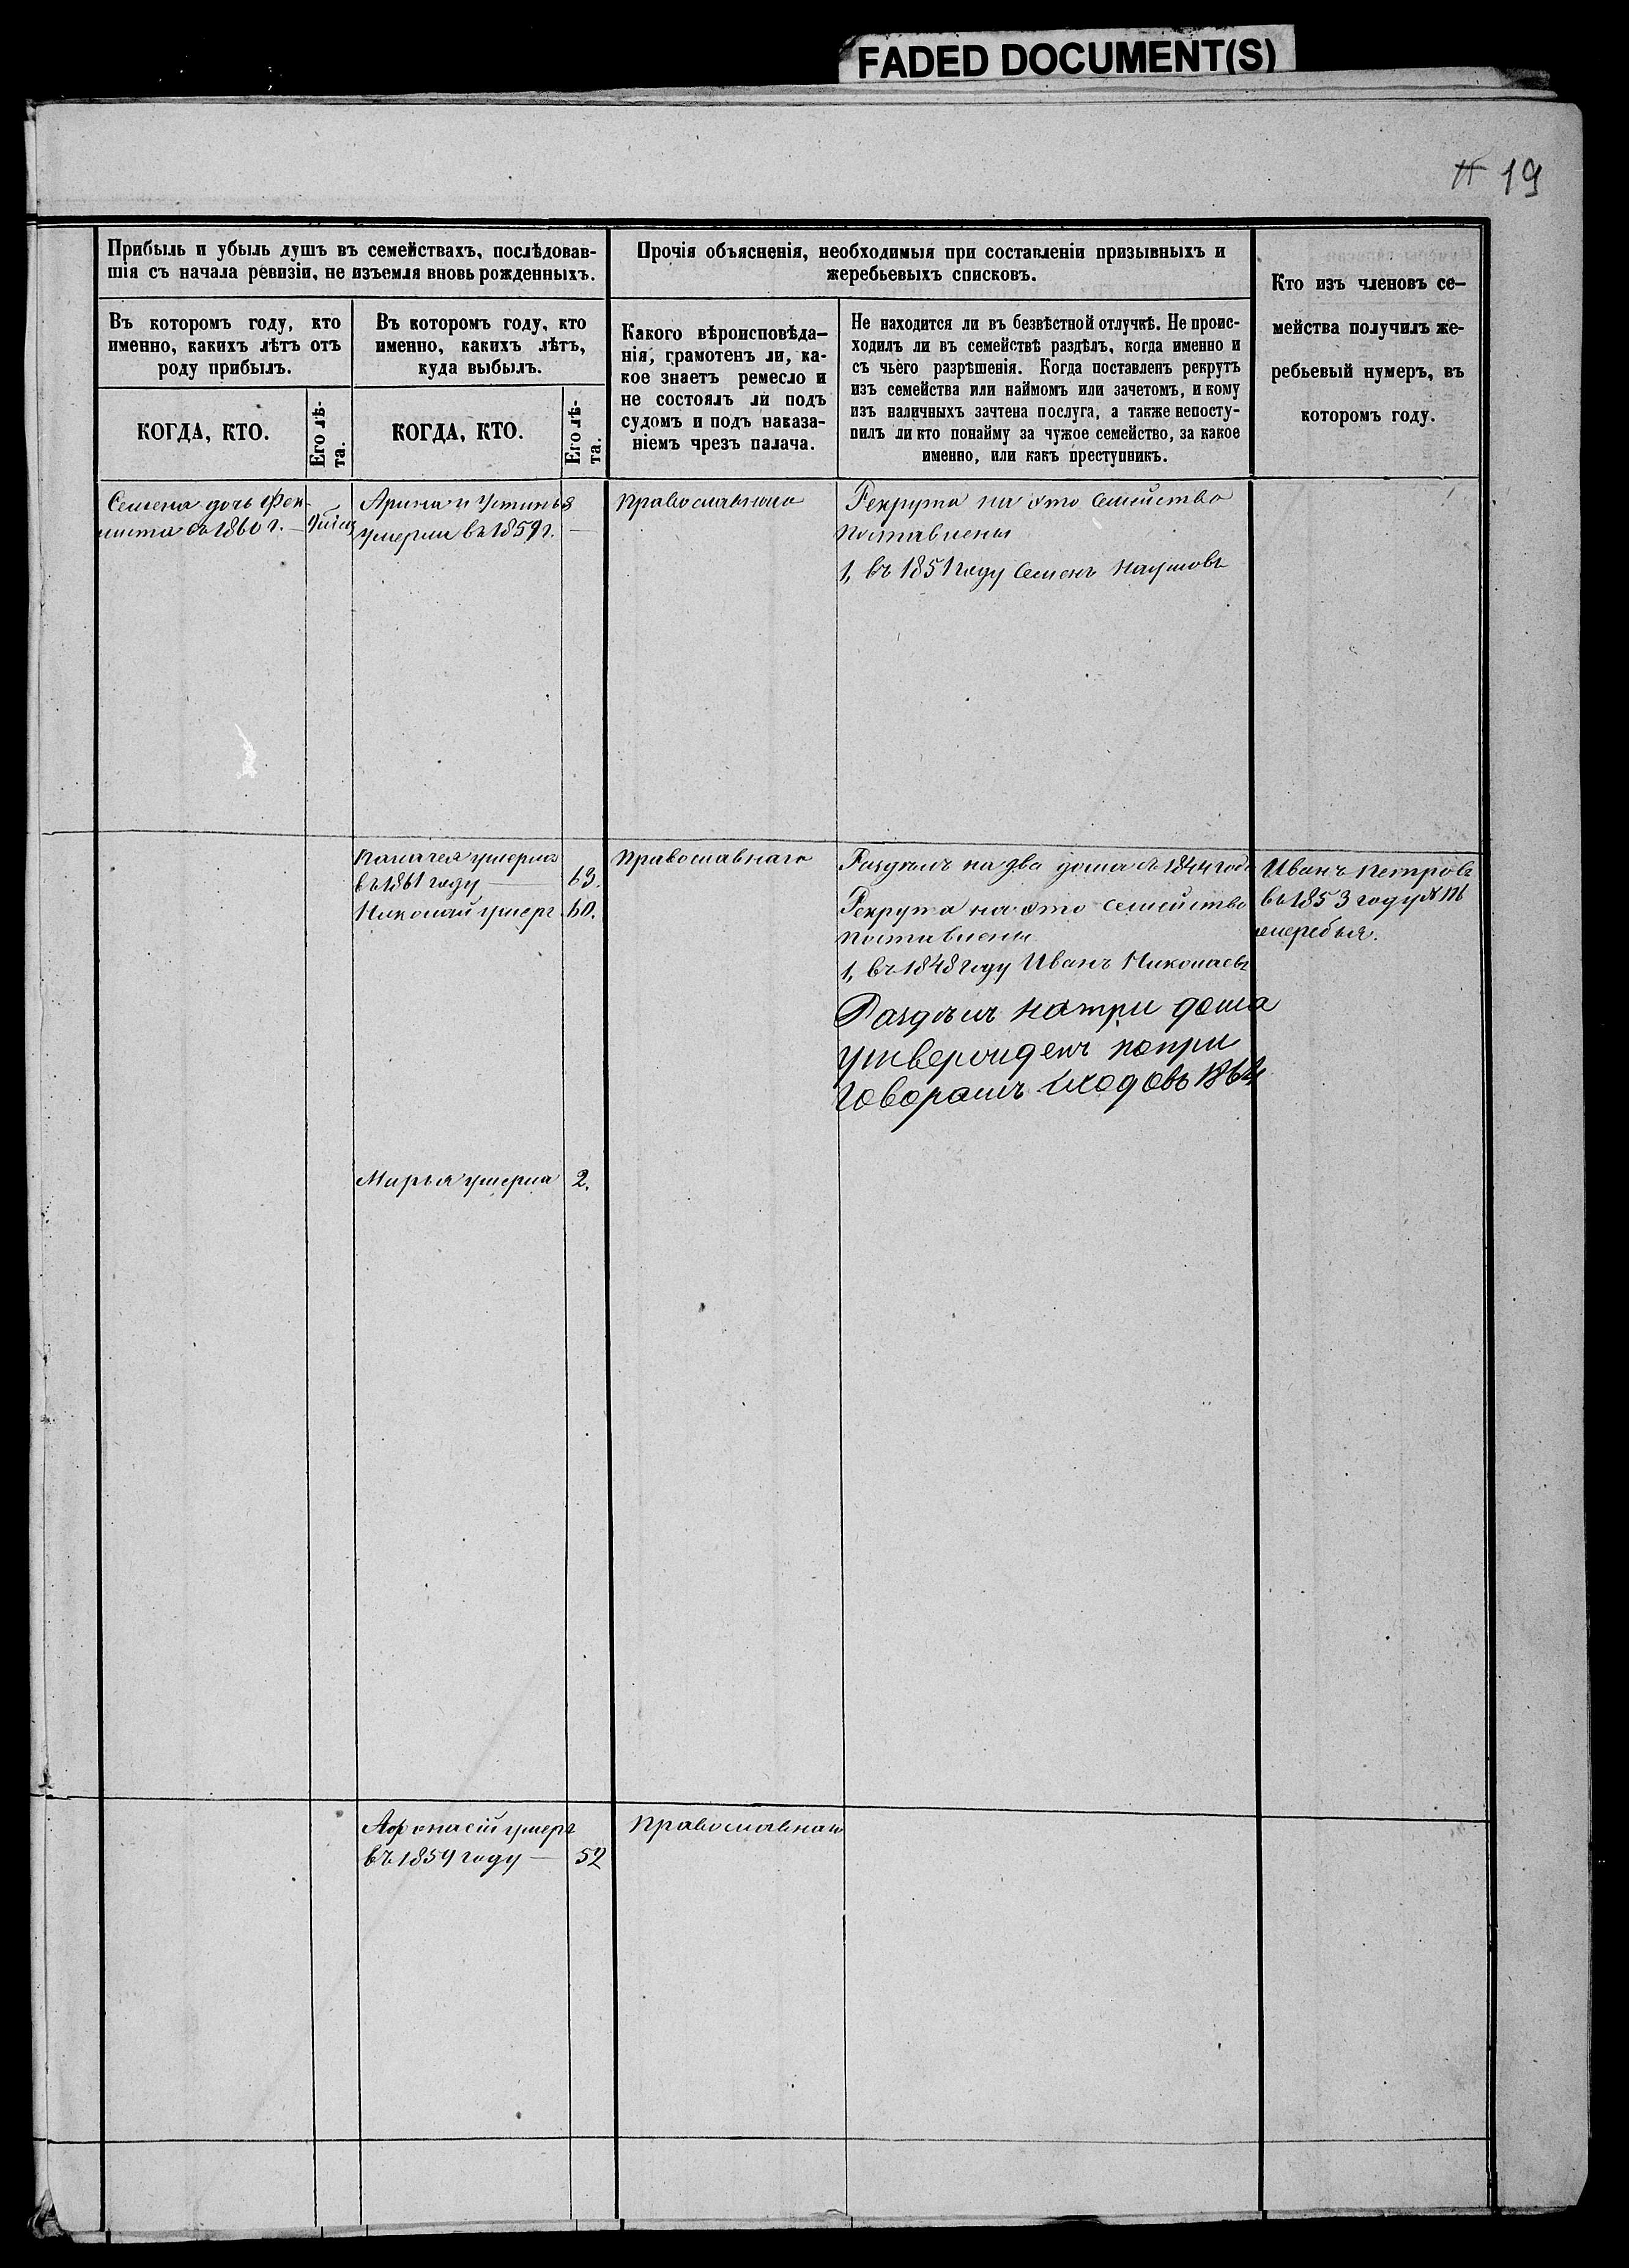 FADED DOCUMENT(S)
19
Прибыль и убыль душъ въ семействахъ, послѣдовав-
шія съ начала ревизіи, не изъемля вновь рожденныхъ.
Въ которомъ году, кто
именно, какихъ лѣтъ отъ
роду прибылъ.
КОГДА, КТО.
Его лѣ-
та.
Въ которомъ году, кто
именно, какихъ лѣтъ,
куда выбылъ.
КОГДА, КТО.
Его лѣ-
та.
Прочія объясненія, необходимыя при составленіи призывныхъ и
жеребьевыхъ списковъ.
Какого вѣроисповѣда-
нія, грамотенъ ли, ка-
кое знаетъ ремесло и
не состоялъ ли подъ
судомъ и подъ наказа-
ніемъ чрезъ палача.
Не находится ли въ безвѣстной отлучкѣ. Не проис-
ходилъ ли въ семействѣ раздѣлъ, когда именно и
съ чьего разрѣшенія. Когда поставленъ рекрутъ
изъ семейства или наймомъ или зачетомъ, и кому
изъ наличныхъ зачтена послуга, а также непосту-
пилъ ли кто понайму за чужое семейство, за какое
именно, или какъ преступникъ.
Кто изъ членовъ се-
мейства получилъ же-
ребьевый нумеръ, въ
которомъ году.
Семена дочь Фек-
листа въ 1860 г.
Арина и Устинья
умерли въ 1859 г.
Православнаго
Рекрута на это семейство
поставлены
1, въ 1851 году Семенъ Наумовъ
Палагея умерла
въ 1861 году — 63.
Николай умеръ. 60.
Православнаго
Раздѣлъ на два дома въ 1844 году
Рекрута на это семейство
поставлены
1, въ 1848 году Иванъ Николаевъ
Раздѣлъ натри дома
утвержденъ попри
говорамъ сходовъ 1864
Иванъ Петровъ
въ 1853 году №
жеребья.
Марья умерла 2.
Афонасій умеръ
въ 1859 году — 52
Православнаго